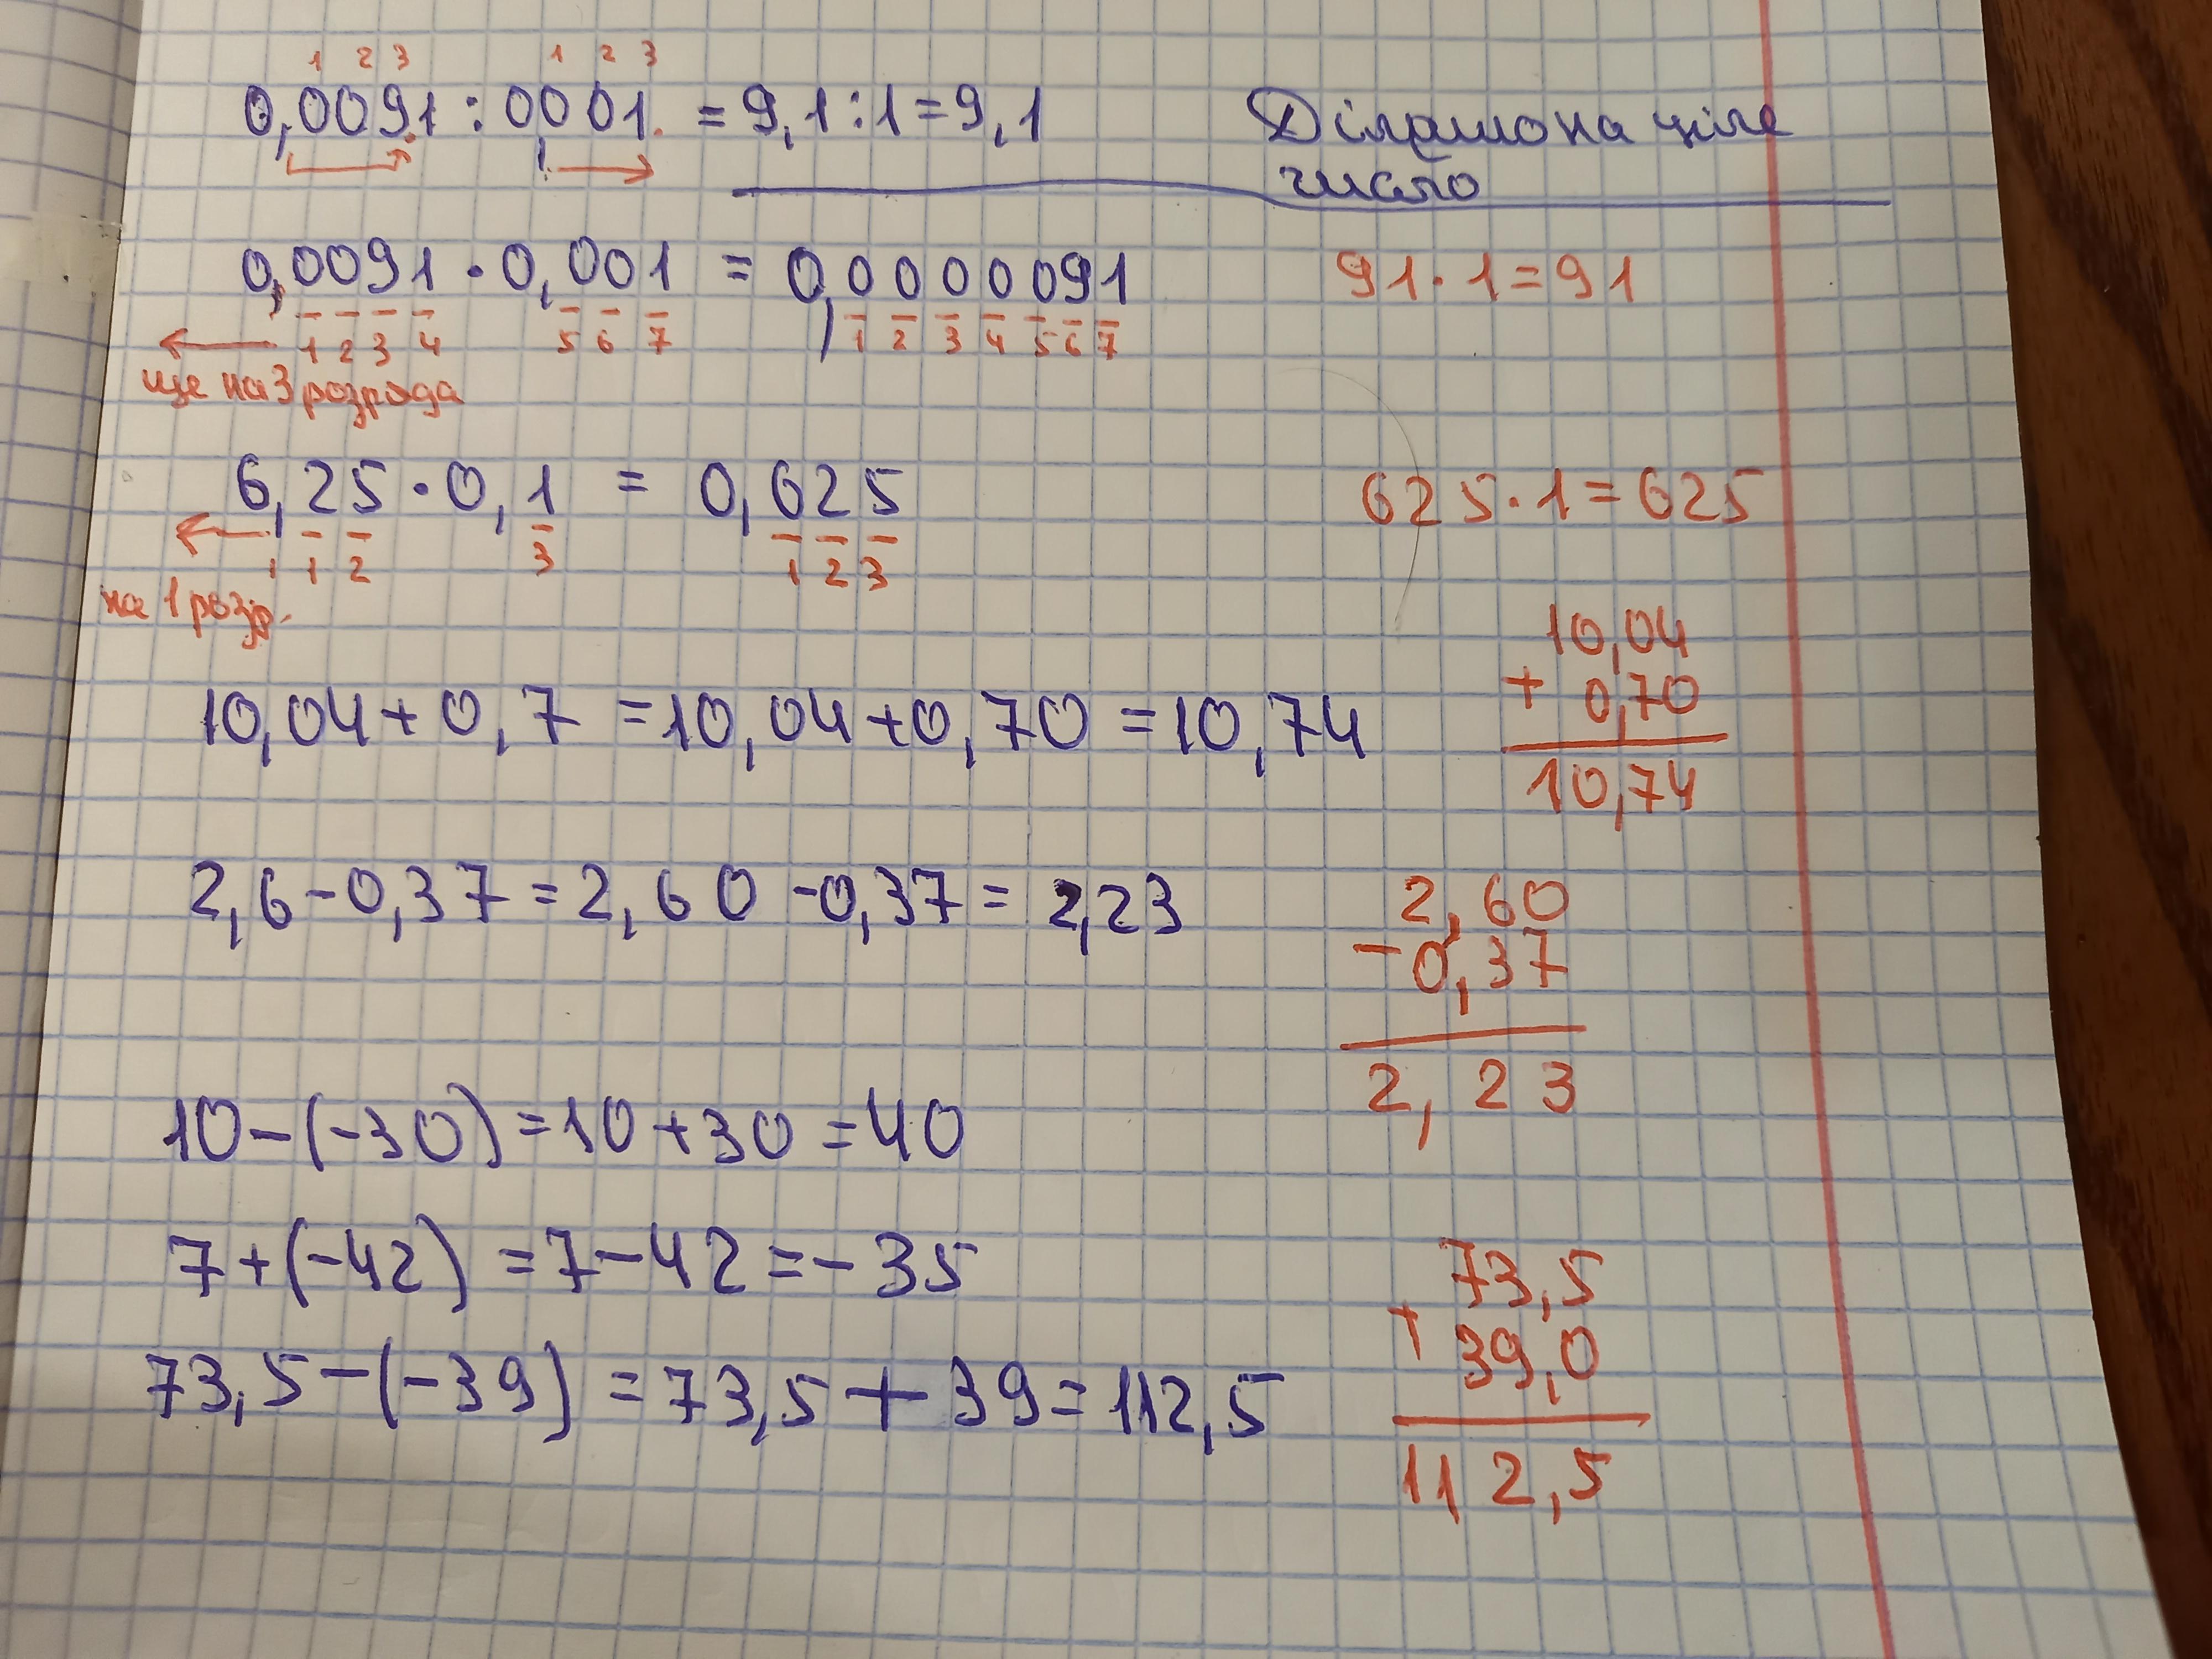 1 2 3 1 2 3
0,0091 : 0,001. = 9,1 : 1 = 9,1 Ділимо на ціле
число
0,0091 · 0,001 = 0,0000091 91 · 1 = 91
1 2 3 4 5 6 7 1 2 3 4 5 6 7
ще на 3 розряда
6,25 · 0,1 = 0,625 625 · 1 = 625
1 1 2 3 1 2 3
на 1 розр.
10,04
+ 0,70
10,04 + 0,7 = 10,04 + 0,70 = 10,74
10,74
2,6 - 0,37 = 2,60 - 0,37 = 2,23
2,60
- 0,37
2,23
10 - (-30) = 10 + 30 = 40
7 + (-42) = 7 - 42 = - 35
73,5
+ 39,0
73,5 - (-39) = 73,5 + 39 = 112,5
112,5